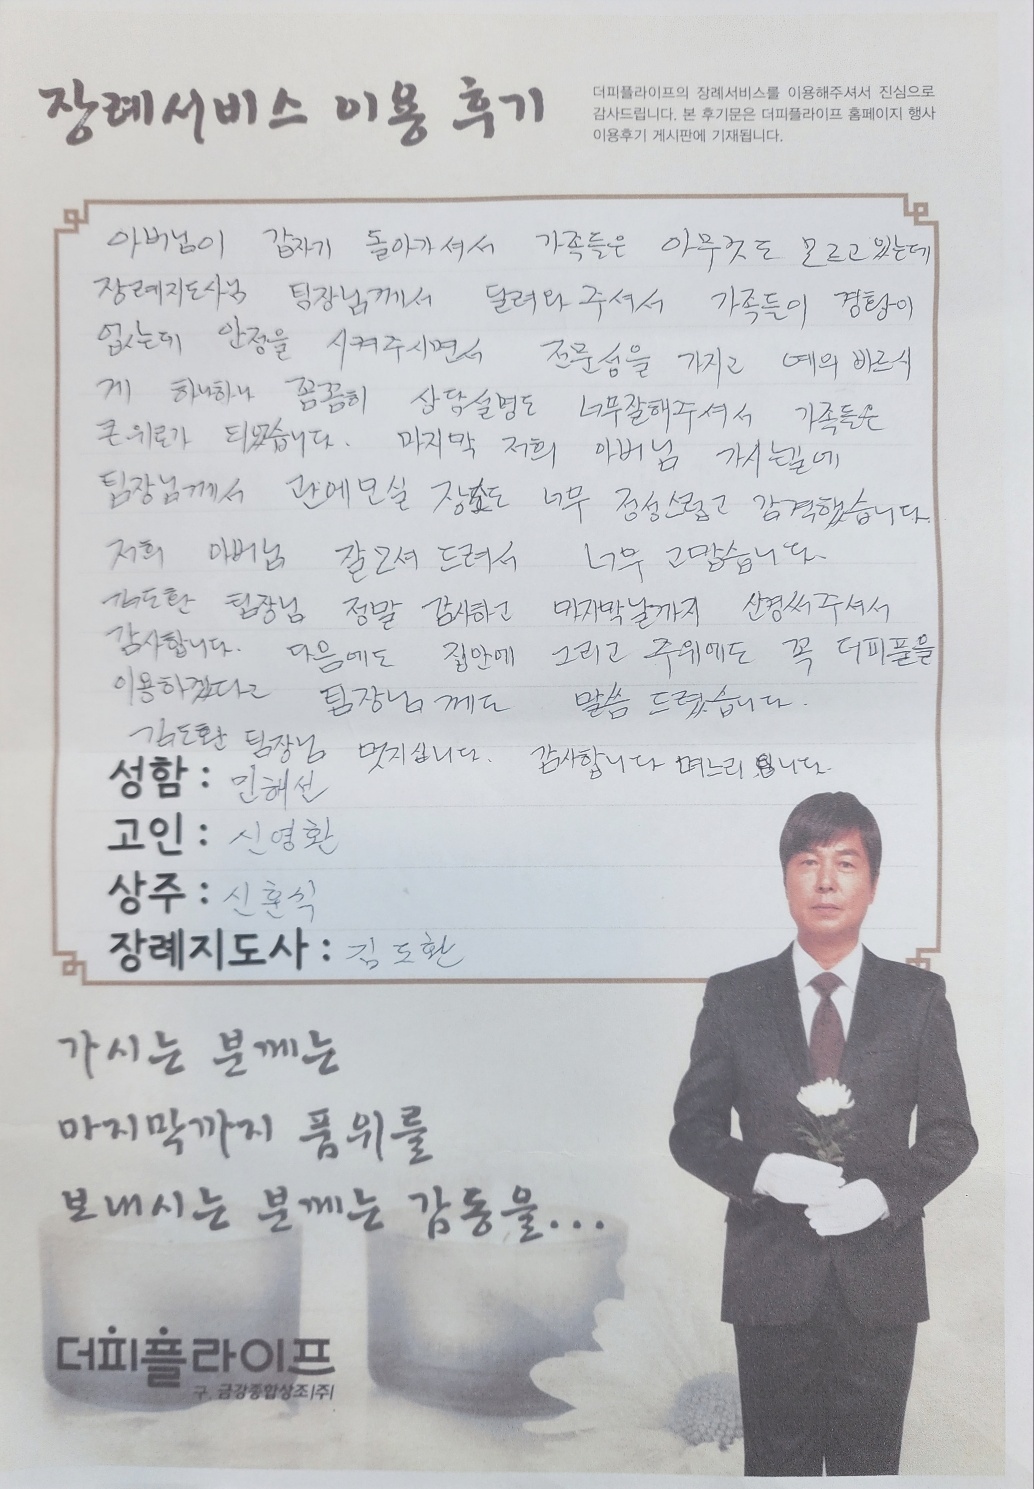 장례서비스 이용 후기
더피플라이프의 장례서비스를 이용해주셔서 진심으로
감사드립니다. 본 후기문은 더피플라이프 홈페이지 행사
이용후기 게시판에 기재됩니다.
아버님이 갑자기 돌아가셔서 가족들은 아무것도 모르고 있는데
장례지도사님 팀장님께서 달려와 주셔서 가족들이 경황이
없는데 안정을 시켜주시면서 전문성을 가지고 예의 바르시
게 하나하나 꼼꼼히 상담설명도 너무잘해주셔서 가족들은
큰위로가 되었습니다. 마지막 저희 아버님 가시는길에
팀장님께서 관에모실 장식도 너무 정성스럽고 감격했습니다.
저희 아버님 잘모셔 드려서 너무 고맙습니다.
김도환 팀장님 정말 감사하고 마지막날까지 신경써주셔서
감사합니다. 다음에도 집안에 그리고 주위에도 꼭 더피플을
이용하겠다고 팀장님께도 말씀 드렸습니다.
김도환 팀장님 멋지십니다. 감사합니다 며느리 입니다.
성함 : 민혜선
고인 : 신영환
상주 : 신훈식
장례지도사 : 김도환
가시는 분께는
마지막까지 품위를
보내시는 분께는 감동을...
더피플라이프
구. 금강종합상조(주)